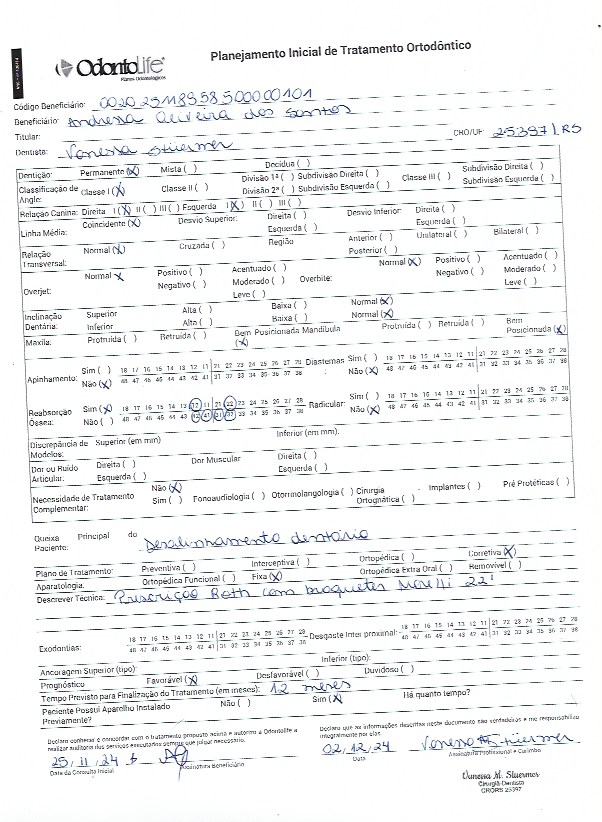 OdontoLife
Planos Odontológicos
Planejamento Inicial de Tratamento Ortodôntico
Código Beneficiário: 0020251189585 00000101
Beneficiário: Andressa Oliveira dos Santos
Titular:
Dentista: Vanessa Stuermer CRO/UF: 25397/RS
Dentição: Permanente (X) Mista ( ) Decídua ( )
Classificação de Angle: Classe I (X) Classe II ( ) Divisão 1ª ( ) Subdivisão Direita ( ) Classe III ( ) Subdivisão Direita ( )
Divisão 2ª ( ) Subdivisão Esquerda ( ) Subdivisão Esquerda ( )
Relação Canina: Direita I (X) II ( ) III ( ) Esquerda I (X) II ( ) III ( )
Linha Média: Coincidente (X) Desvio Superior: Direita ( ) Desvio Inferior: Direita ( )
Esquerda ( ) Esquerda ( )
Relação Transversal: Normal (X) Cruzada ( ) Região Anterior ( ) Unilateral ( ) Bilateral ( )
Posterior ( )
Overjet: Normal X Positivo ( ) Acentuado ( ) Overbite: Normal (X) Positivo ( ) Acentuado ( )
Negativo ( ) Moderado ( ) Negativo ( ) Moderado ( )
Leve ( ) Leve ( )
Inclinação Dentária: Superior Alta ( ) Baixa ( ) Normal (X)
Inferior Alta ( ) Baixa ( ) Normal (X)
Maxila: Protruída ( ) Retruída ( ) Bem Posicionada (X) Mandíbula Protruída ( ) Retruída ( ) Bem Posicionada (X)
Apinhamento: Sim ( ) 18 17 16 15 14 13 12 11 21 22 23 24 25 26 27 28 Diastemas: Sim ( ) 18 17 16 15 14 13 12 11 21 22 23 24 25 26 27 28
Não (X) 48 47 46 45 44 43 42 41 31 32 33 34 35 36 37 38 Não (X) 48 47 46 45 44 43 42 41 31 32 33 34 35 36 37 38
Reabsorção Óssea: Sim (X) 18 17 16 15 14 13 12 11 21 22 23 24 25 26 27 28 Radicular: Sim ( ) 18 17 16 15 14 13 12 11 21 22 23 24 25 26 27 28
Não ( ) 48 47 46 45 44 43 42 41 31 32 33 34 35 36 37 38 Não (X) 48 47 46 45 44 43 42 41 31 32 33 34 35 36 37 38
Discrepância de Modelos: Superior (em mm) Inferior (em mm):
Dor ou Ruído Articular: Direita ( ) Dor Muscular Direita ( )
Esquerda ( ) Esquerda ( )
Necessidade de Tratamento Complementar: Não (X)
Sim ( ) Fonoaudiologia ( ) Otorrinolangologia ( ) Cirurgia Ortognática ( ) Implantes ( ) Pré Protéticas ( )
Queixa Principal do Paciente: Desalinhamento dentário
Plano de Tratamento: Preventiva ( ) Interceptiva ( ) Ortopédica ( ) Corretiva (X)
Aparatologia: Ortopédica Funcional ( ) Fixa (X) Ortopédica Extra Oral ( ) Removível ( )
Descrever Técnica: Prescrição Roth com braquetes Morelli 22'
Exodontias: 18 17 16 15 14 13 12 11 21 22 23 24 25 26 27 28 Desgaste Inter proximal: 18 17 16 15 14 13 12 11 21 22 23 24 25 26 27 28
48 47 46 45 44 43 42 41 31 32 33 34 35 36 37 38 48 47 46 45 44 43 42 41 31 32 33 34 35 36 37 38
Ancoragem Superior (tipo): Inferior (tipo):
Prognóstico Favorável (X) Desfavorável ( ) Duvidoso ( )
Tempo Previsto para Finalização do Tratamento (em meses): 12 meses
Paciente Possui Aparelho Instalado Previamente? Não ( ) Sim (X) Há quanto tempo?
Declaro conhecer e concordar com o tratamento proposto acima e autorizo a Odontolife a realizar auditoria dos serviços executados sempre que julgar necessário.
Declaro que as informações descritas neste documento são verdadeiras e me responsabilizo integralmente por elas.
25/11/24 02/12/24 Vanessa Stuermer
Data da Consulta Inicial Assinatura Beneficiário Data Assinatura Profissional e Carimbo
Vanessa M. Stuermer
Cirurgiã-Dentista
CRORS 25397